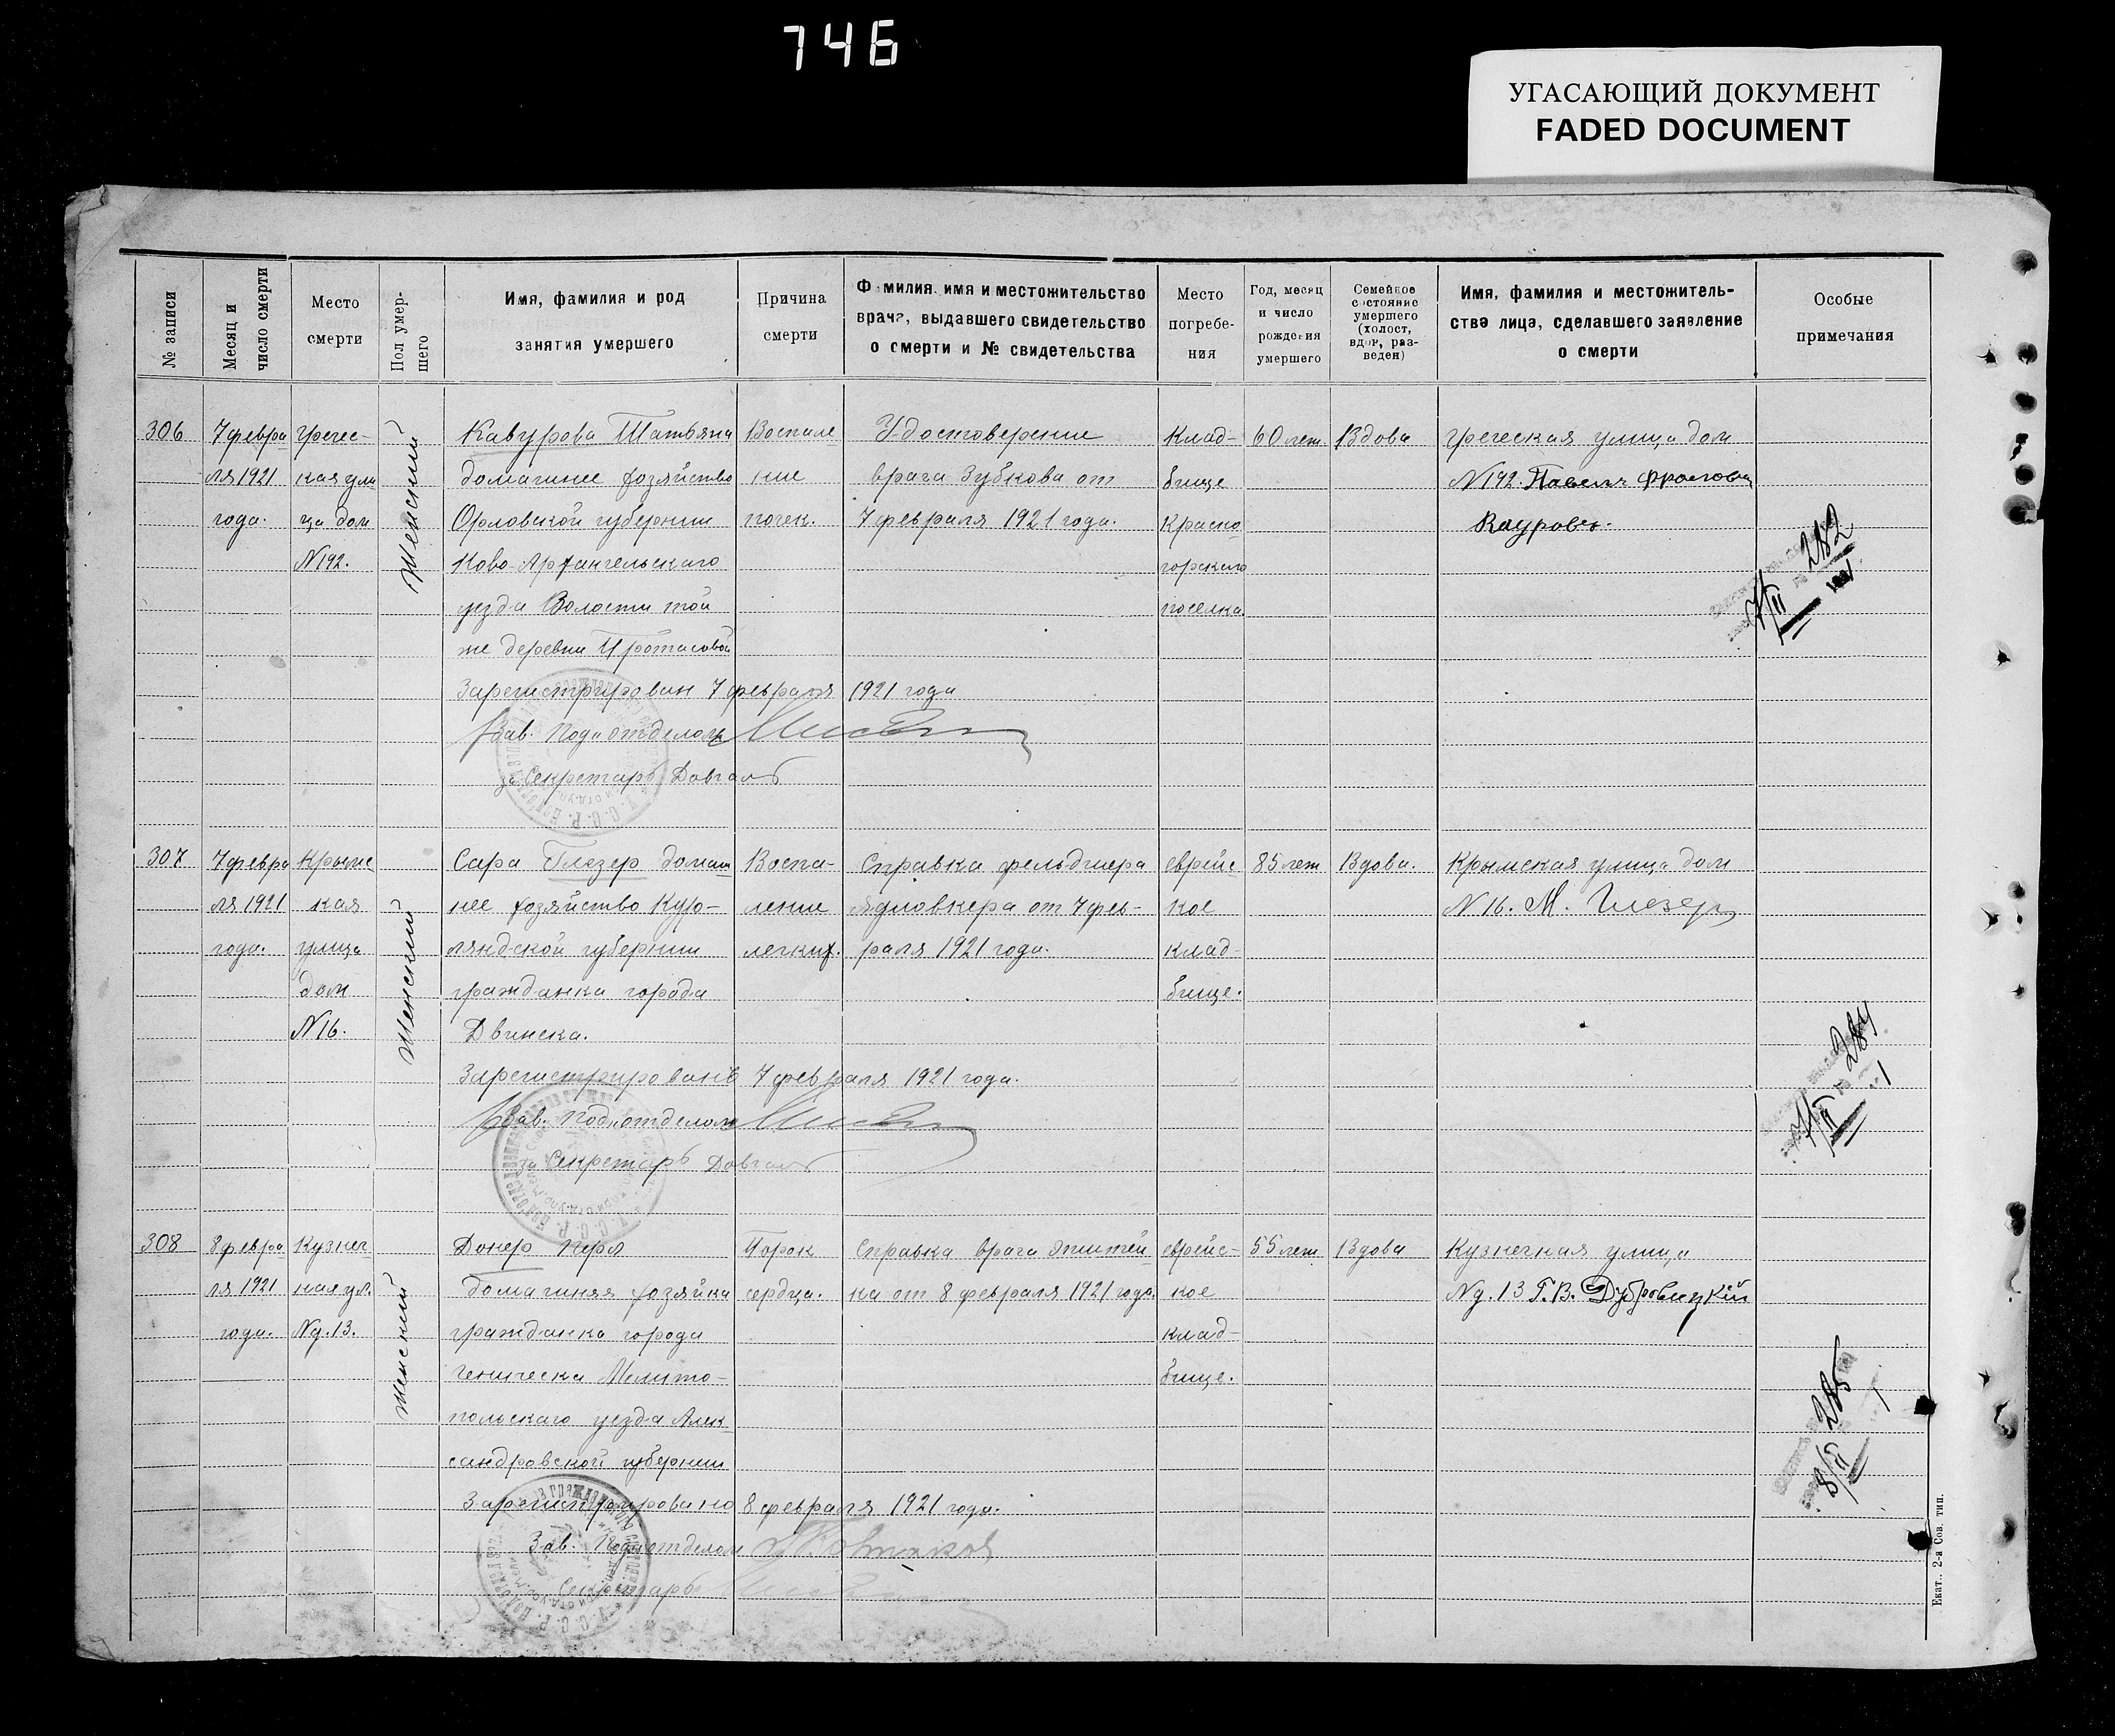 746
УГАСАЮЩИЙ ДОКУМЕНТ
FADED DOCUMENT
№ записи
Месяц и
число смерти
Место
смерти
Пол умер-
шего
Имя, фамилия и род
занятия умершего
Причина
смерти
Фамилия, имя и местожительство
врача, выдавшего свидетельство
о смерти и № свидетельства
Место
погребе-
ния
Год, месяц
и число
рождения
умершего
Семейное
состояние
умершего
(холост,
вдов, раз-
веден)
Имя, фамилия и местожитель-
ства лица, сделавшего заявление
о смерти
Особые
примечания
306
7 февра
ля 1921
года.
Гречес-
кая ули
ца дом
N 192.
Женский
Кавурова Татьяна
домашнее хозяйство
Орловской губернии
Ново-Архангельскаго
уезда Волости той
же деревни Протасовой
Воспале
ние
почек.
Удостоверение
врача Зубкова от
7 февраля 1921 года.
Клад-
бище
Красно
горского
поселка.
60 лет
Вдова
Греческая улица дом
N 192. Павелъ Фролович
Кауровъ.
282
7/II
1921
Зарегистрирован 7 февраля 1921 года
Зав. Подотделом
за Секретарь Довгаль
307
7 февра
ля 1921
года.
Крымс
кая
улица
дом
N 16.
Женский
Сара Глезер домаш
нее хозяйство Кур-
ляндской губернии
гражданка города
Двинска.
Воспа-
ление
легких.
Справка фельдшера
от 7 фев-
раля 1921 года.
еврейс
кое
клад-
бище.
85 лет
Вдова.
Крымская улица дом
N 16. М. Глезер
284
7/II
Зарегистрированъ 7 февраля 1921 года.
Зав. Подотделом
за Секретарь Довгаль
308
8 февра
ля 1921
года.
Кузнеч
ная ул.
Nд. 13.
Женский
Донер Перл
домашняя хозяйка
гражданка города
Геническа Мелито-
польскаго уезда Алек
сандровской губернии
Порок
сердца.
Справка врача Эпштей
на от 8 февраля 1921 года.
еврейс-
кое
клад-
бище.
55 лет
Вдова
Кузнечная улица
Nд. 13 Г.В. Дубровицкій
285
8/II
Зарегистрировано 8 февраля 1921 года.
Зав. Подотделом
Секретарь
Екат., 2-я Сов. тип.